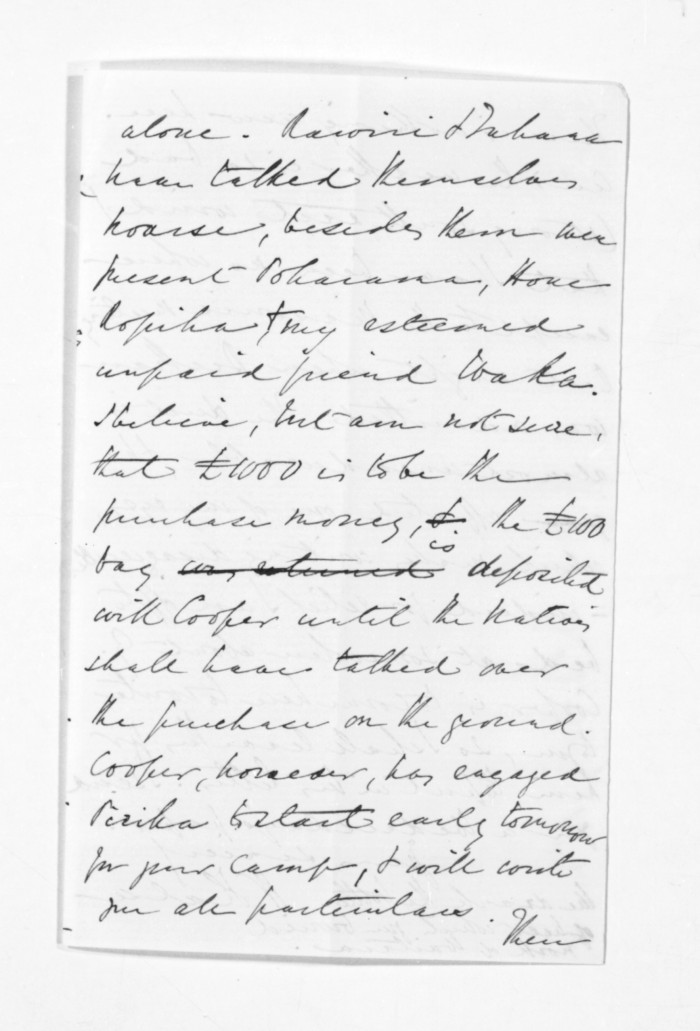 alone. Rawiri & Tuhaua
have talked themselves
hoarse, besides them were
present Poharama, Hone
Ropiha & my esteemed
unpaid friend Waka.
I believe, but am not sure,
that £1000 is to be the
purchase money, & the £100
is
bag was returned deposited
with Cooper until the Natives
shall have talked over
the purchase on the ground.
Cooper, however, has engaged
Piriha to start early tomorrow
for your camp, & will write
you all particulars.
Then